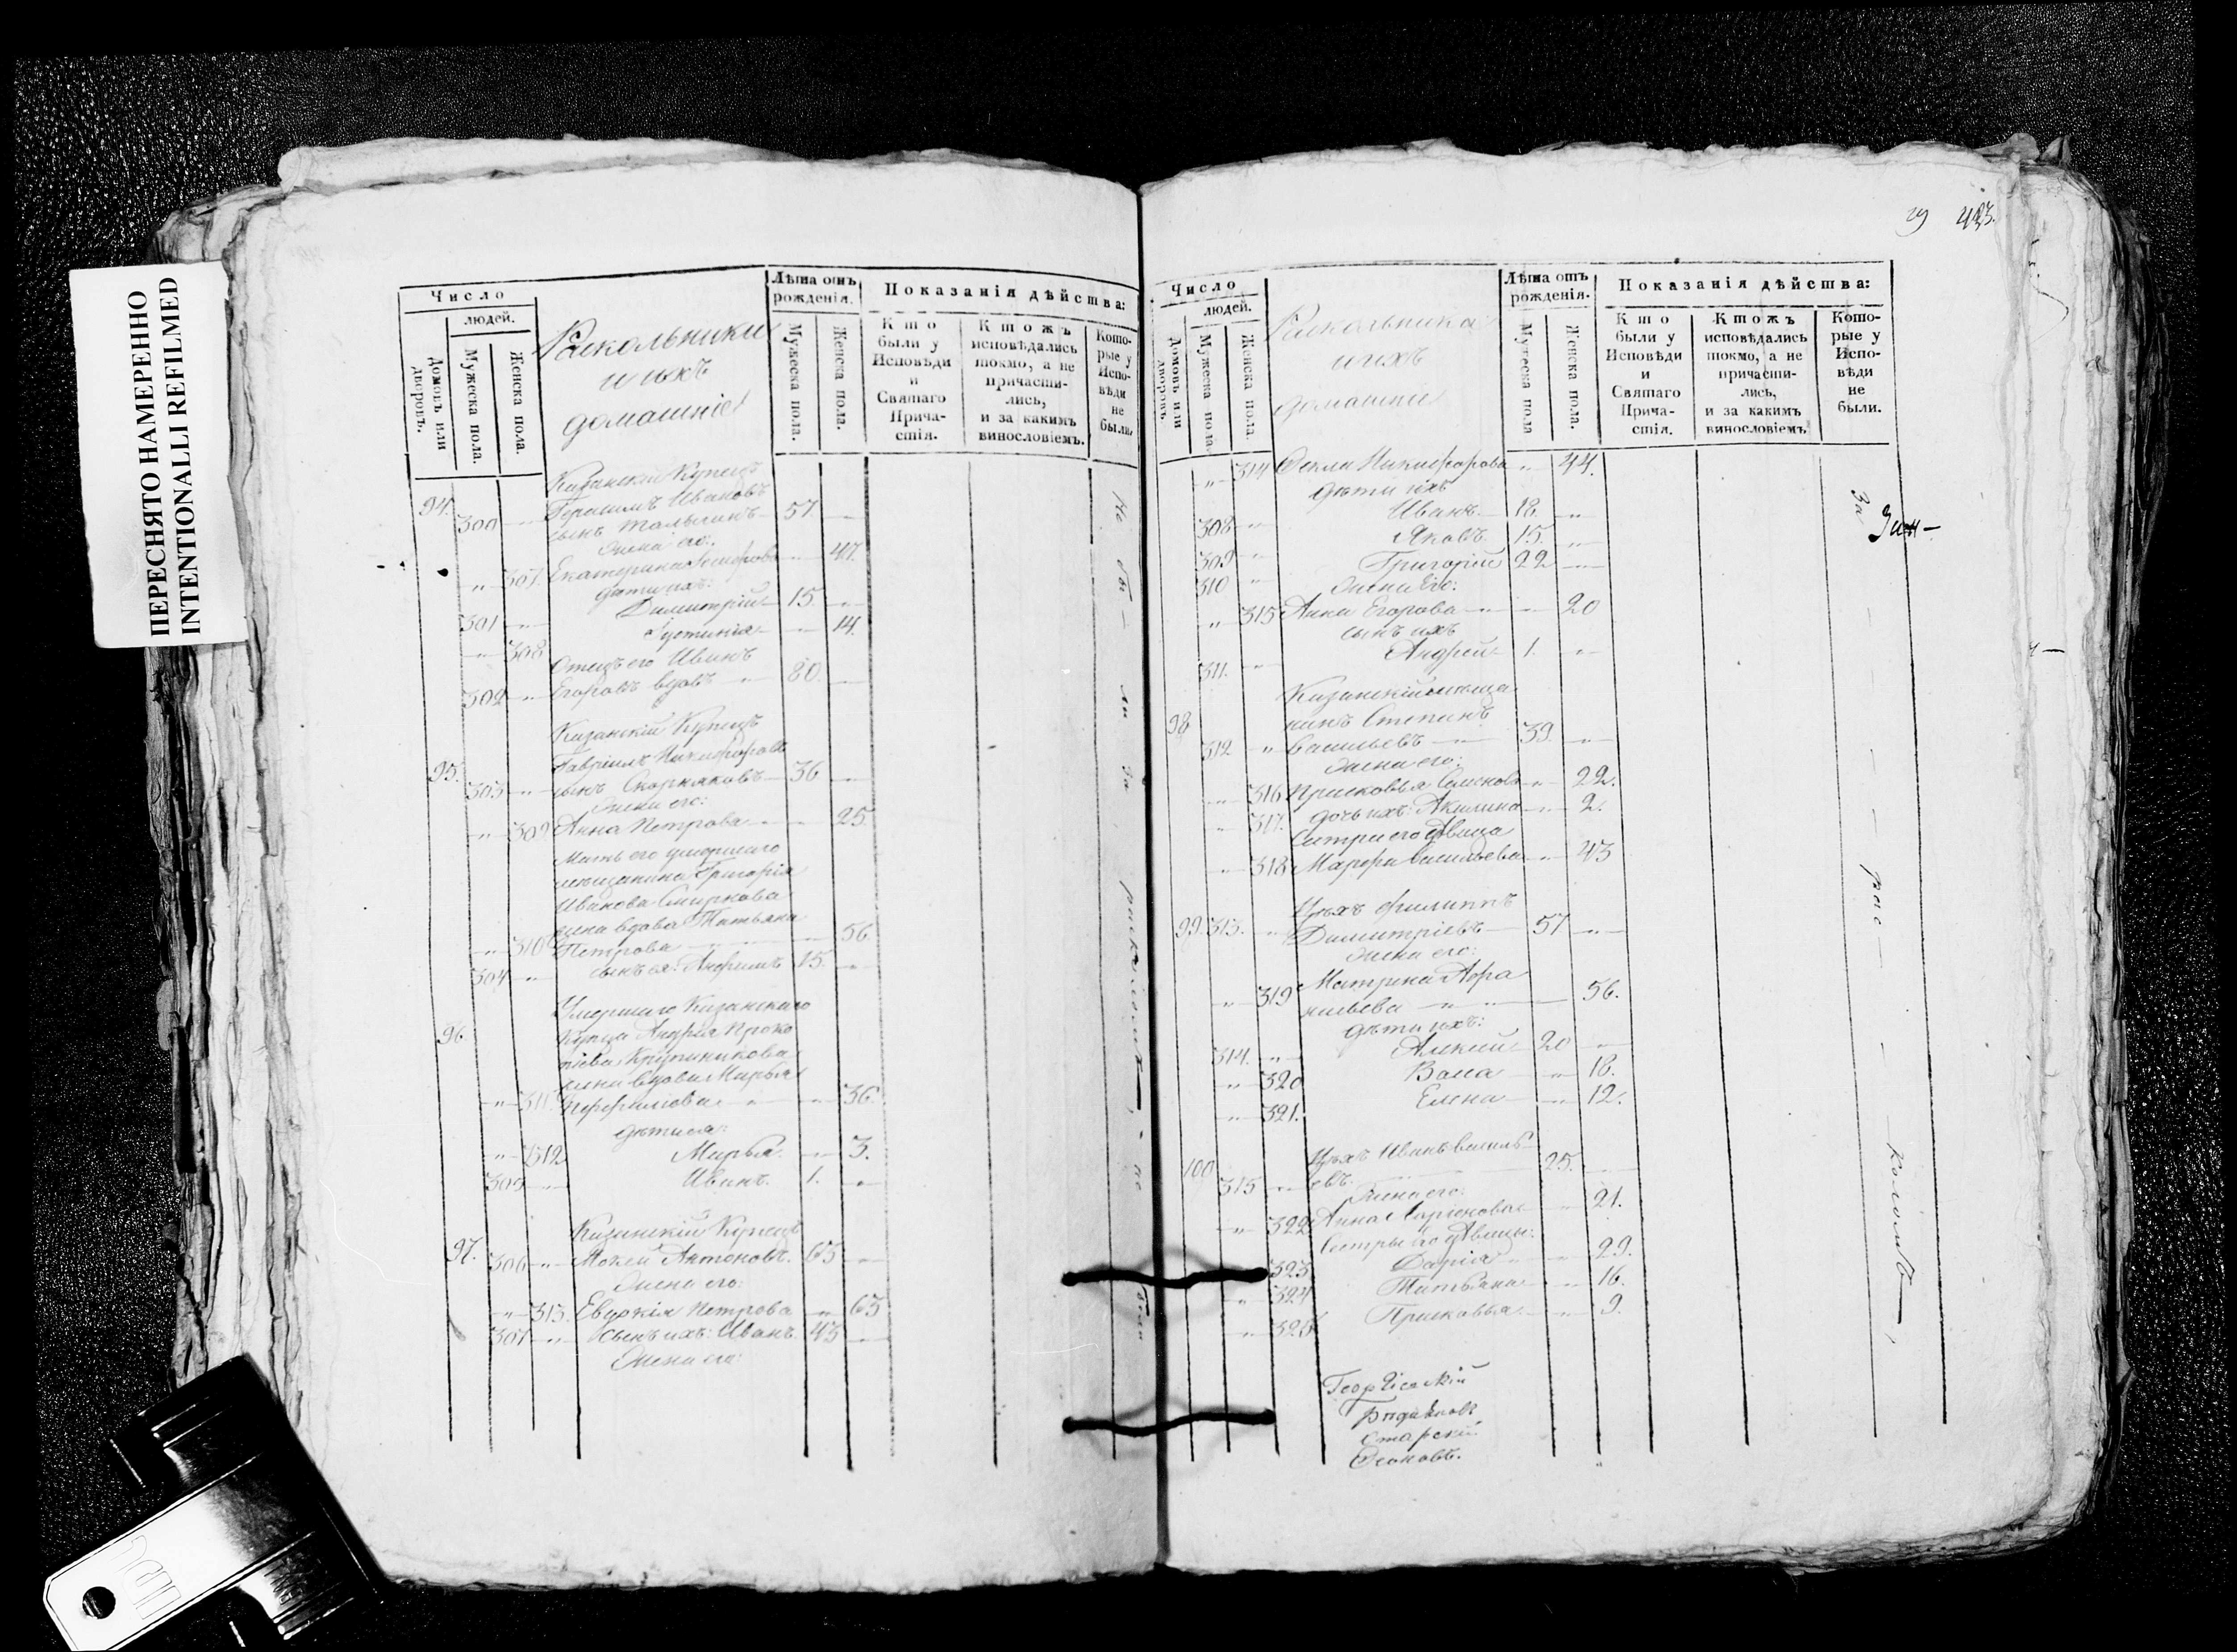 ПЕРЕСНЯТО НАМЕРЕННО
INTENTIONALLI REFILMED
Число
людей.
Домовъ или дворовъ.
Мужеска пола.
Женска пола.
Раскольники
и ихъ
домашніе
Лѣта отъ рожденія.
Мужеска пола.
Женска пола.
Показанія дѣйства:
Кто были у Исповѣди и Святаго Прича-стія.
Ктожъ исповѣдались токмо, а не причасти-лись, и за какимъ винословіемъ.
Кото-рые у Испо-вѣди не были.
Казанскій Купецъ
94. 300 Герасимъ Ивановъ
сынъ 57.
Жена его:
307. Екатерина 47.
дѣти ихъ:
301 Димитрій 15.
308 Устинія 14.
Отецъ его Иванъ
302 Егоровъ вдовъ 80.
Казанскій Купецъ
95. Гавріилъ Никифоровъ
303 сынъ Скорняковъ 36
Жена его:
309 Анна Петрова 25.
Мать его умершаго
мещанина Григорія
Иванова Смирнова
жена вдова Татьяна
310 Петрова 56.
304 сынъ ея: 15.
Умершаго Казанскаго
96. Купца Андрея Проко
піева Крупеникова
жена вдова Марья
311. 36.
дѣти ея:
312 Марья 3.
305 Иванъ 1.
Казанскій Купецъ
97. 306 Мокей Антоновъ. 65
Жена его:
313. Евдокія Петрова 65
307 сынъ ихъ: Иванъ 45
Жена его:
29 423.
Число
людей.
Домовъ или дворовъ.
Мужеска пола.
Женска пола.
Раскольники
и ихъ
домашніе
Лѣта отъ рожденія.
Мужеска пола
Женска пола.
Показанія дѣйства:
Кто были у Исповѣди и Святаго Прича-стія.
Ктожъ исповѣдались токмо, а не причасти-лись, и за какимъ винословіемъ.
Кото-рые у Испо-вѣди не были.
314 Фекла Никифорова 44.
дѣти ихъ
308 Иванъ 18.
309 Яковъ 15.
310 Григорій 22
Жена его:
315 Анна Егорова 20
сынъ ихъ
311. Андрей 1.
Казанскій мѣща
98 нинъ Степанъ
312 Васильевъ 39.
Жена его:
316 Прасковья Семенова 22.
317. дочь ихъ: Акилина 2.
Сестра его дѣвица
318 Марфа Васильева 43
Цехъ Филиппъ
99. 313. Димитріевъ 57
Жена его:
319 Матрена Афа
насьева 56.
дѣти ихъ:
314. Алексей 20
320 Васса 18.
321. Елена 12.
100 Цехъ Иванъ Василь
315 евъ 25.
Жена его:
322 Анна Ларионова 21.
Сестры его дѣвицы:
323 Дарія 29.
324 Татьяна 16.
325 Прасковья 9.
За рас коломъ